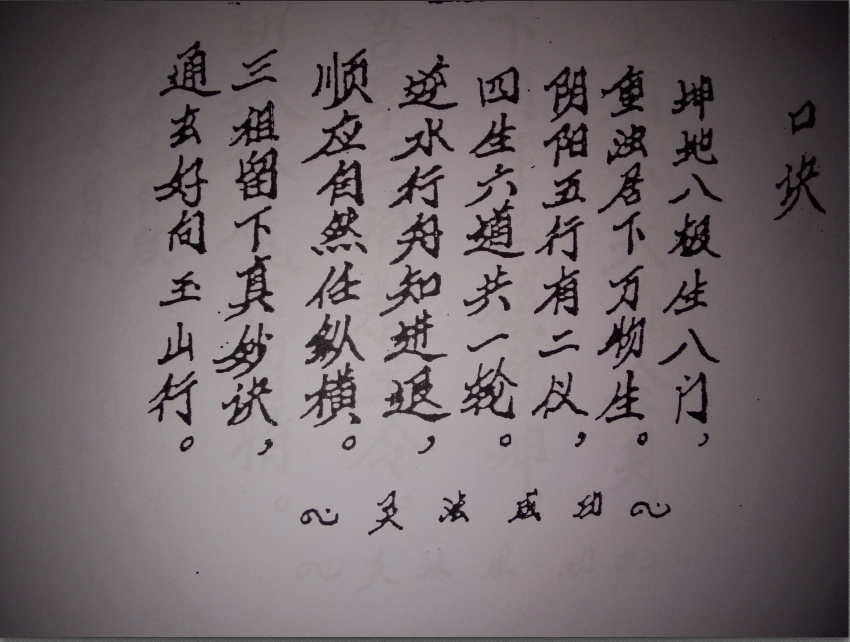 口诀
坤地八极生八门，
重浊居下万物生。
阴阳五行有二仪，
四生六道共一轮。
逆水行舟知进退，
顺应自然任纵横。
三祖留下真妙诀，
通玄好向玉山行。
～灵法成功～